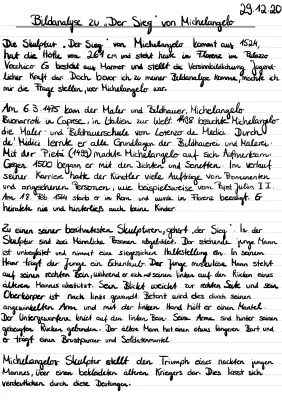 29.12.20
Bildanalyse zu „Der Sieg" von Michelangelo
Die Skulptur „Der Sieg" von Michelangelo kommt aus 1524,
hat die Höhe von 2,61 cm und steht heute in Florenz im Palazzo
Vecchio. Es besteht aus Marmor und stellt die Versinnbildlichung Jugend-
licher Kraft dar. Doch bevor ich zu meiner Bildanalyse komme, möchte ich
mir die Frage stellen, wer Michelangelo war.
Am 6.3.1475 kam der Maler und Bildhauer, Michelangelo
Buonarroti in Caprese, in Italien zur Welt. 1488 besuchte Michelangelo
die Maler- und Bildhauerschule von Lorenzo de Medici. Durch
de' Medici lernte er alle Grundlagen der Bildhauerei und Malerei.
Mit der Pietà (1498) machte Michelangelo auf sich Aufmerksam.
Gegen 1520 begann er mit den Dichten und Sonetten. Im Verlauf
seiner Karriere hatte der Künstler viele Aufträge von Prominenten
und angesehenen Personen, wie beispielsweise vom Papst Julius II.
Am 18. Feb. 1564 starb er in Rom und wurde in Florenz beerdigt. Er
heiratete nie und hinterließ auch keine Kinder.
Zu einen seiner berühmtesten Skulpturen, gehört „der Sieg". In der
Skulptur sind zwei Männliche Personen abgebildet. Der stehende junge Mann
ist unbekleidet und nimmt eine siegreiche Haltestellung ein. In seinem
Haar trägt der junge ein Eichenlaub. Der junge muskulöse Mann steht
auf seinen rechten Bein, während er sich mit seinem linken auf den Rücken eines
älteren Mannes abstützt. Sein Blick weicht zur rechten Seite und sein
Oberkörper ist nach links gewandt. Betont wird dies durch seinen
angewinkelten Arm und mit der linken Hand hält er einen Mantel.
Der Untergeworfene kniet auf den linken Bein. Seine Arme sind hinter seinen
gebeugten Rücken gebunden. Der ältere Mann hat einen etwas längeren Bart und
er trägt einen Brustpanzer und Soldatenmantel.
Michelangelos Skulptur stellt den Triumph eines nackten jungen
Mannes, über einen bekleideten älteren Kriegers dar. Dies lässt sich
verdeutlichen durch diese Deutungen.